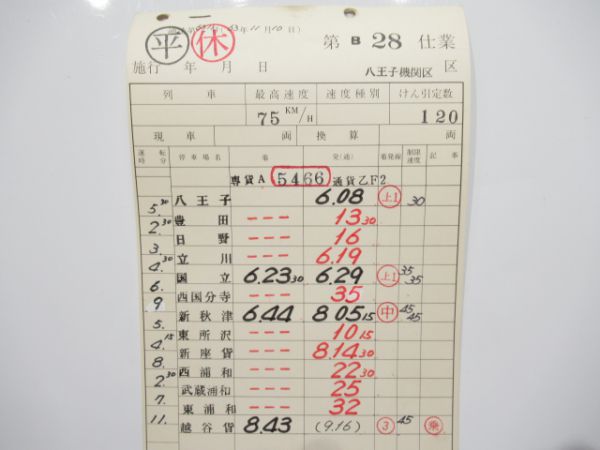 平 休
年11月10日)
第 B 28 仕業
施行 年 月 日 八王子機関区 区
列車 最高速度 速度種別 けん引定数
75 KM/H 120
現車 両 換算 両
運転時分 停車場名 着 発(通) 着発線 制限速度 記事
専貨A 5466 通貨乙F2
八王子 6.08 上1 30
5.30
豊田 --- 13 30
2.30
日野 --- 16
3.
立川 --- 6.19
4.30
国立 6.23 30 6.29 上1 35 35
6.
西国分寺 --- 35
9
新秋津 6.44 8 05 15 中 45 45
5.
東所沢 --- 10 15
4.15
新座貨 --- 8.14 30
8.
西浦和 --- 22 30
2.30
武蔵浦和 --- 25
7.
東浦和 --- 32
11.
越谷貨 8.43 (9.16) 3 45 乗